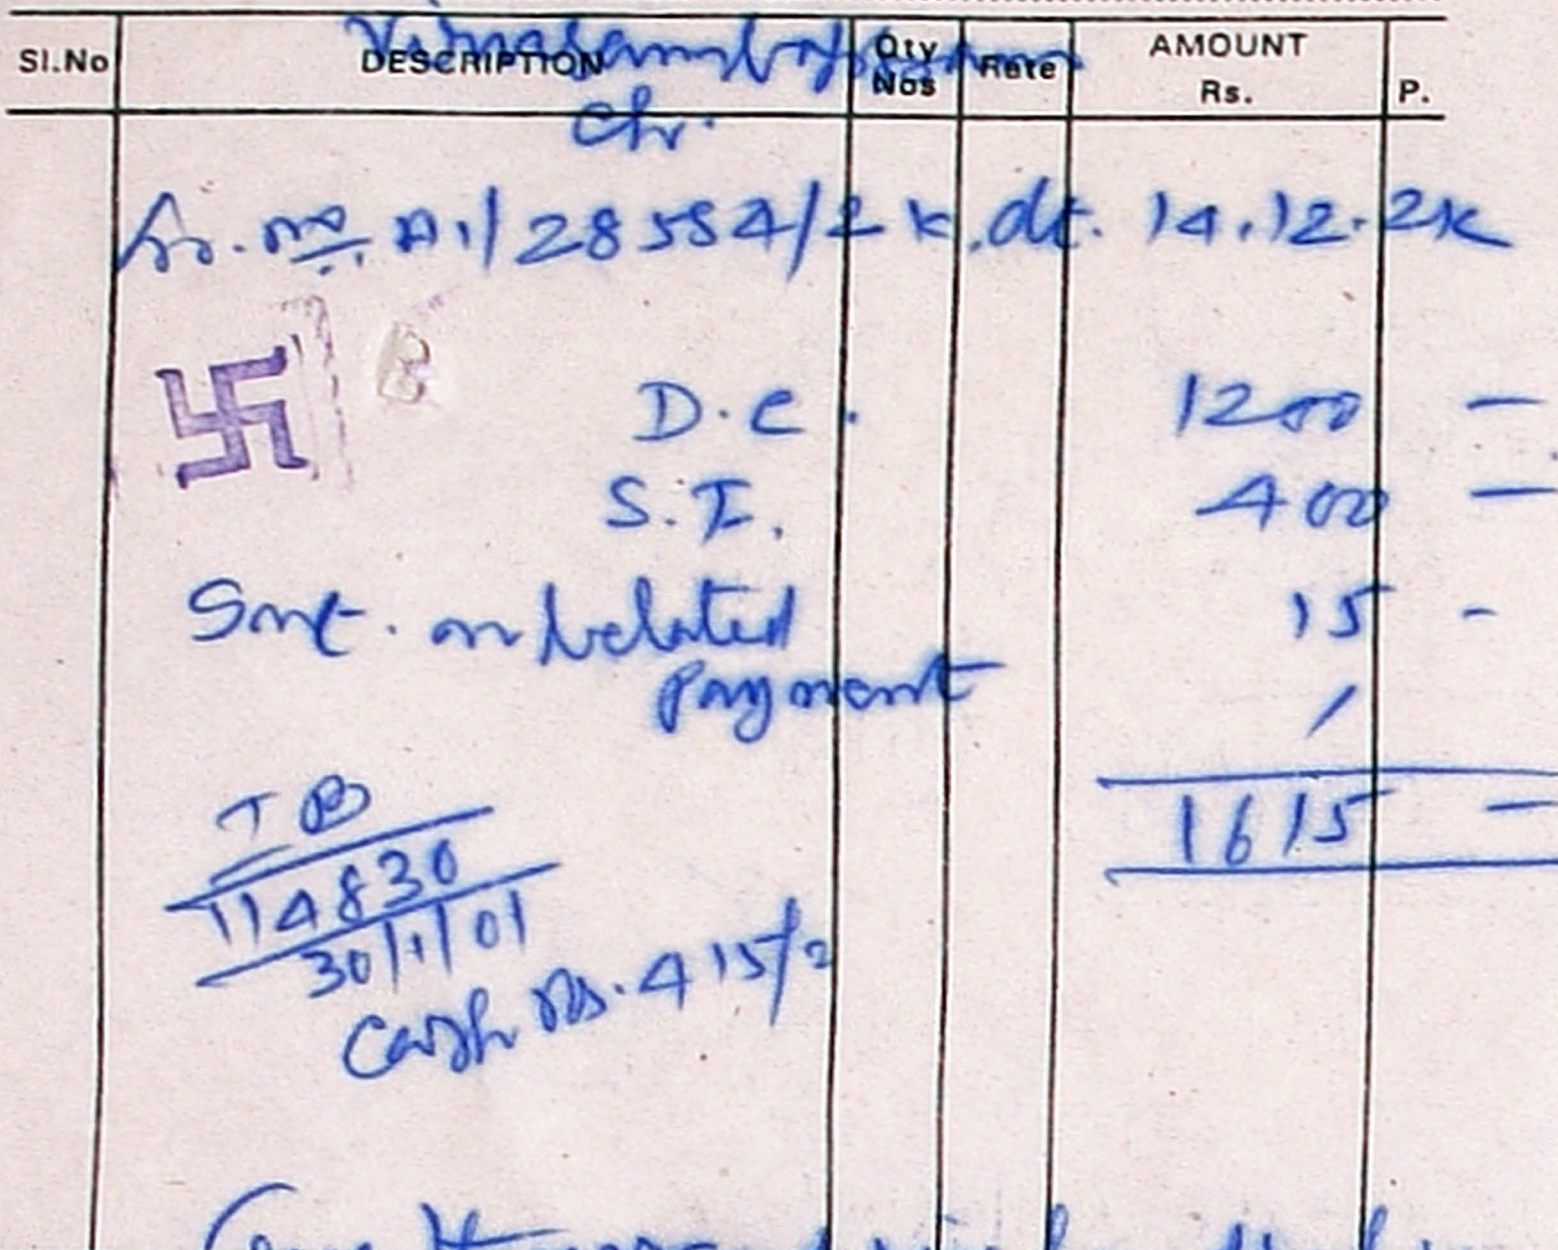 Sl.No DESCRIPTION Qty Nos Rate AMOUNT Rs. P.
Ch.
no A1/28584/2k. dt. 14.12.2k
D.C. 1200 —
S.I. 400 —
Int. on belated 15 -
payment
1615 —
114830
30/1/01
Cash Rs. 415/2